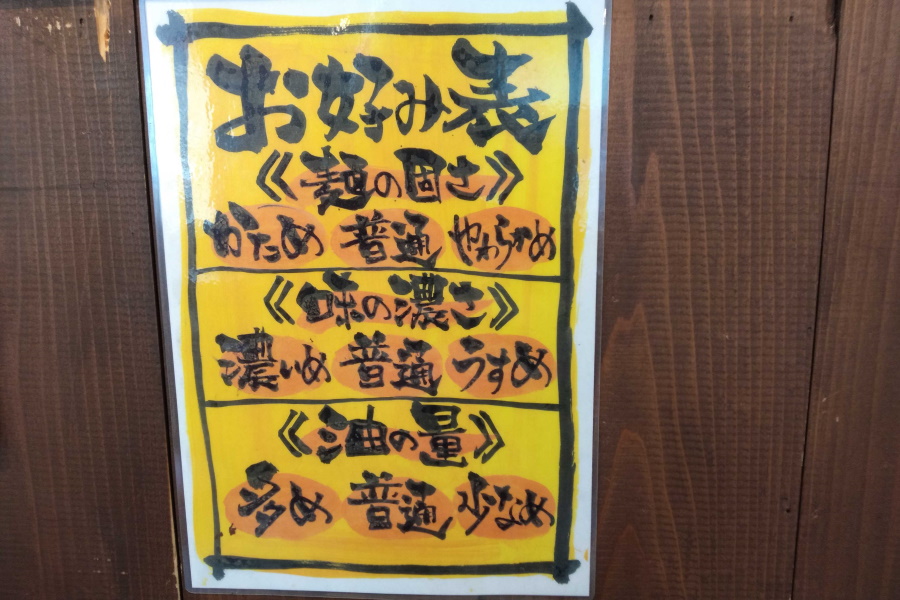 お好み表
《麺の固さ》
かため 普通 やわらかめ
《味の濃さ》
濃いめ 普通 うすめ
《油の量》
多め 普通 少なめ